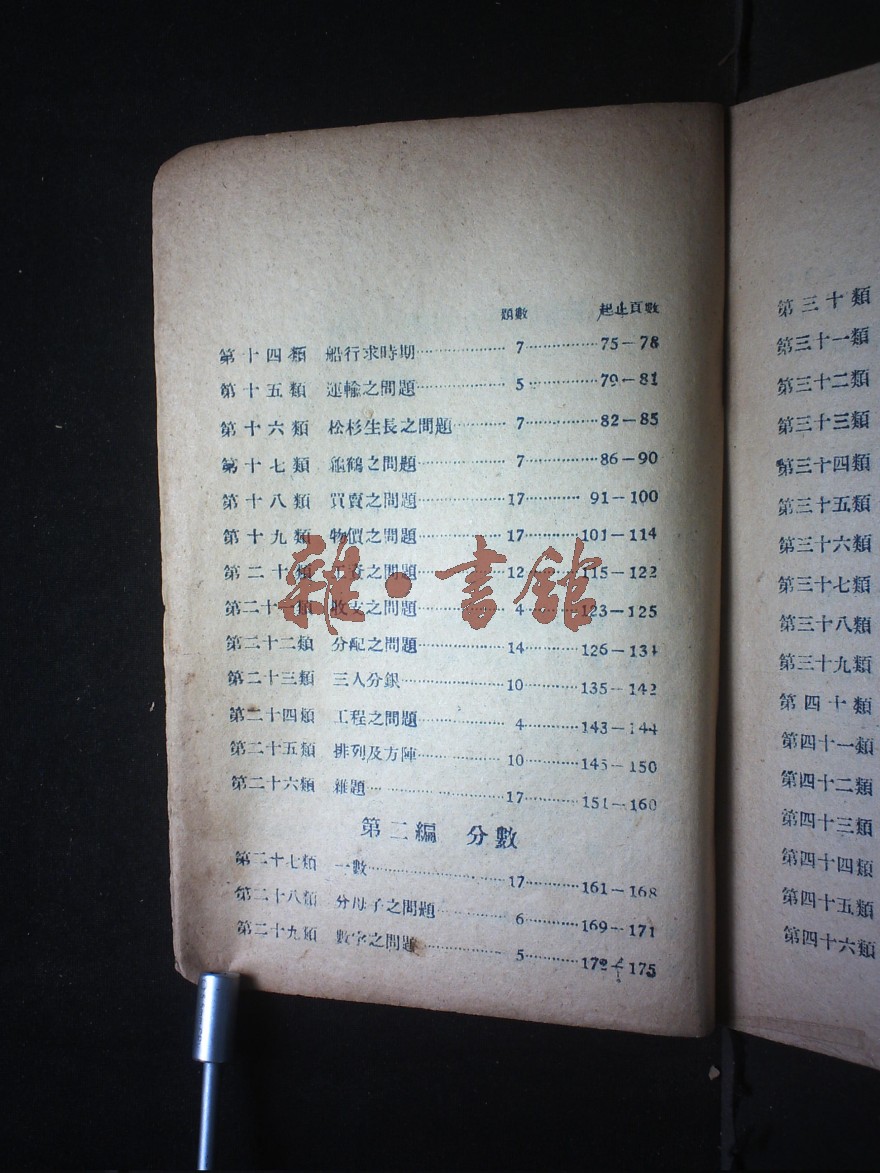 題數 起止頁數
第十四類 船行求時期 7 75－78
第十五類 運輸之問題 5 79－81
第十六類 松杉生長之問題 7 82－85
第十七類 龜鶴之問題 7 86－90
第十八類 買賣之問題 17 91－100
第十九類 物價之問題 17 101－114
第二十類 之問題 12 115－122
第二十一類 收支之問題 4 123－125
第二十二類 分配之問題 14 126－134
第二十三類 三人分銀 10 135－142
第二十四類 工程之問題 4 143－144
第二十五類 排列及方陣 10 145－150
第二十六類 雜題 17 151－160
第二編 分數
第二十七類 一數 17 161－168
第二十八類 分母子之問題 6 169－171
第二十九類 數字之問題 5 172－175
雜·書館
第三十類
第三十一類
第三十二類
第三十三類
第三十四類
第三十五類
第三十六類
第三十七類
第三十八類
第三十九類
第四十類
第四十一類
第四十二類
第四十三類
第四十四類
第四十五類
第四十六類